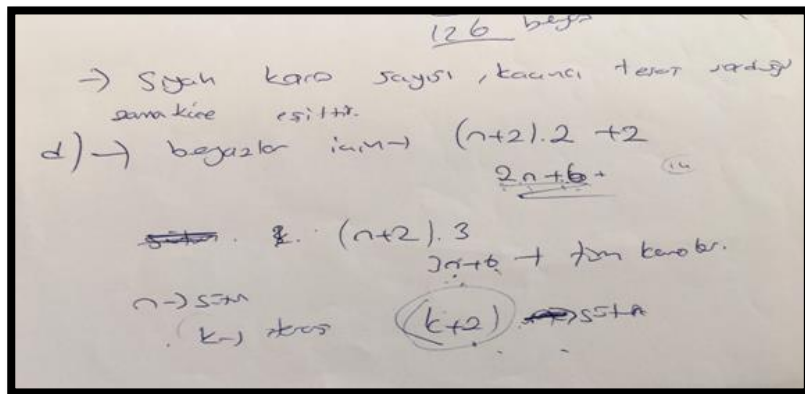 126 beyaz
→ Siyah karo sayısı, kaçıncı tesar sorduğu
eşittir.
d) → beyazlar için → (n+2).2 +2
2n+6
(n+2).3
3n+6 → tüm karolar.
n → sütun
k → (k+2) → sütun